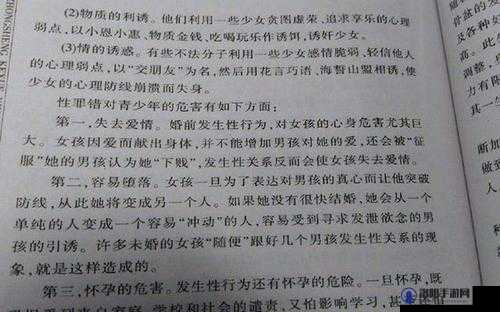 (2)物质的利诱。他们利用一些少女贪图虚荣、追求享乐的心理
弱点,以小恩小惠、物质金钱、吃喝玩乐作诱饵,诱奸少女。
(3)情的诱惑。有些不法分子利用一些少女感情脆弱、轻信他人
的心理弱点,以“交朋友”为名,然后用花言巧语、海誓山盟相诱,使
少女的心理防线崩溃而失身。
性罪错对青少年的危害有如下方面:
第一,失去爱情。婚前发生性行为,对女孩的心身危害尤其巨
大。女孩因爱而献出身体,并不能增加男孩对她的爱,还会被“征
服”她的男孩认为她“下贱”,发生性关系反而会使女孩失去爱情。
第二,容易堕落。女孩一旦为了表达对男孩的真心而让他突破
防线,从此她将变成另一个人。如果她没有很快结婚,她会从一个
单纯的人变成一个容易“冲动”的人,容易受到寻求发泄欲念的男
孩的引诱。许多未婚的女孩“随便”跟好几个男孩发生性关系的现
象,就是这样造成的。
第三,怀孕的危害。发生性行为还有怀孕的危险。一旦怀孕,既
学校和社会的谴责,又怕影响学习,甚